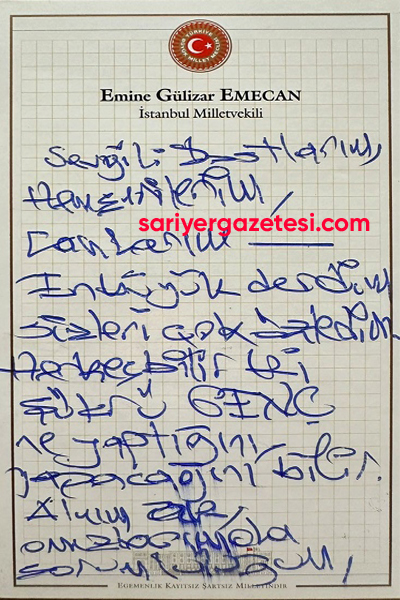 TÜRKİYE BÜYÜK MİLLET MECLİSİ
Emine Gülizar EMECAN
İstanbul Milletvekili
Sevgili Dostlarım,
Hemşerilerim,
sariyergazetesi.com
Canlarım
En büyük derdim
sizleri çok özledim
Herkes bilir ki
Şükrü GENÇ
ne yaptığını,
yapacağını bilir.
Alnım ak
omuzlarımda
EGEMENLİK KAYITSIZ ŞARTSIZ MİLLETİNDİR